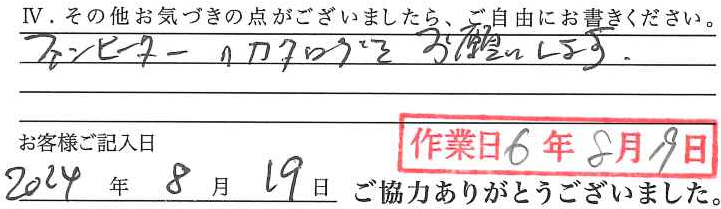 Ⅳ．その他お気づきの点がございましたら、ご自由にお書きください。
ファンヒーターのカタログを お願いします.
お客様ご記入日
作業日 6 年 8 月 19 日
2024 年 8 月 19 日 ご協力ありがとうございました。